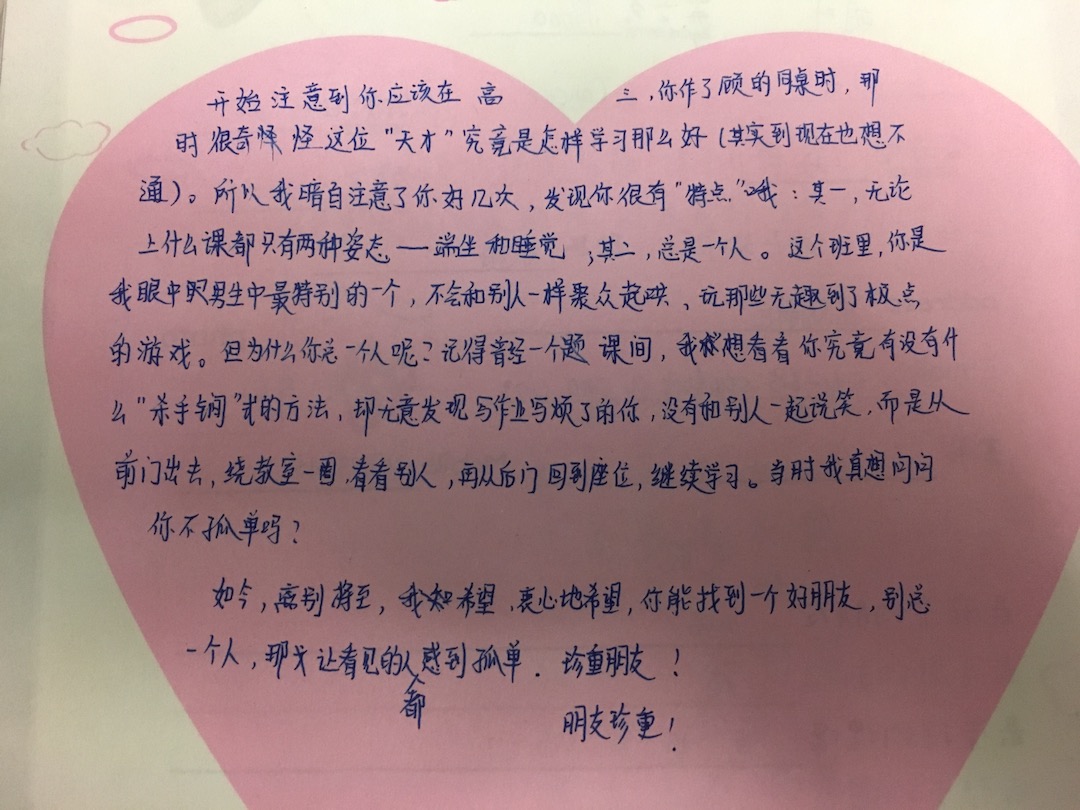 开始注意到你应该在高三,你作了顾的同桌时,那
时很奇怪 怪这位“天才”究竟是怎样学习那么好(其实到现在也想不
通)。所以我暗自注意了你好几次,发现你很有“特点”哦:其一,无论
上什么课都只有两种姿态——端坐和睡觉;其二,总是一个人。这个班里,你是
我眼中男生中最特别的一个,不会和别人一样聚众起哄、玩那些无趣到了极点
的游戏。但为什么你总一个人呢?记得曾经一个 课间,我想看看你究竟有没有什
么“杀手锏”式的方法,却无意发现写作业写烦了的你,没有和别人一起说笑,而是从
前门出去,绕教室一圈,看看别人,再从后门回到座位,继续学习。当时我真想问问
你不孤单吗?
如今,离别将至,我 希望,衷心地希望,你能找到一个好朋友,别总
一个人,那 让看见的人都感到孤单.珍重朋友!
朋友珍重!